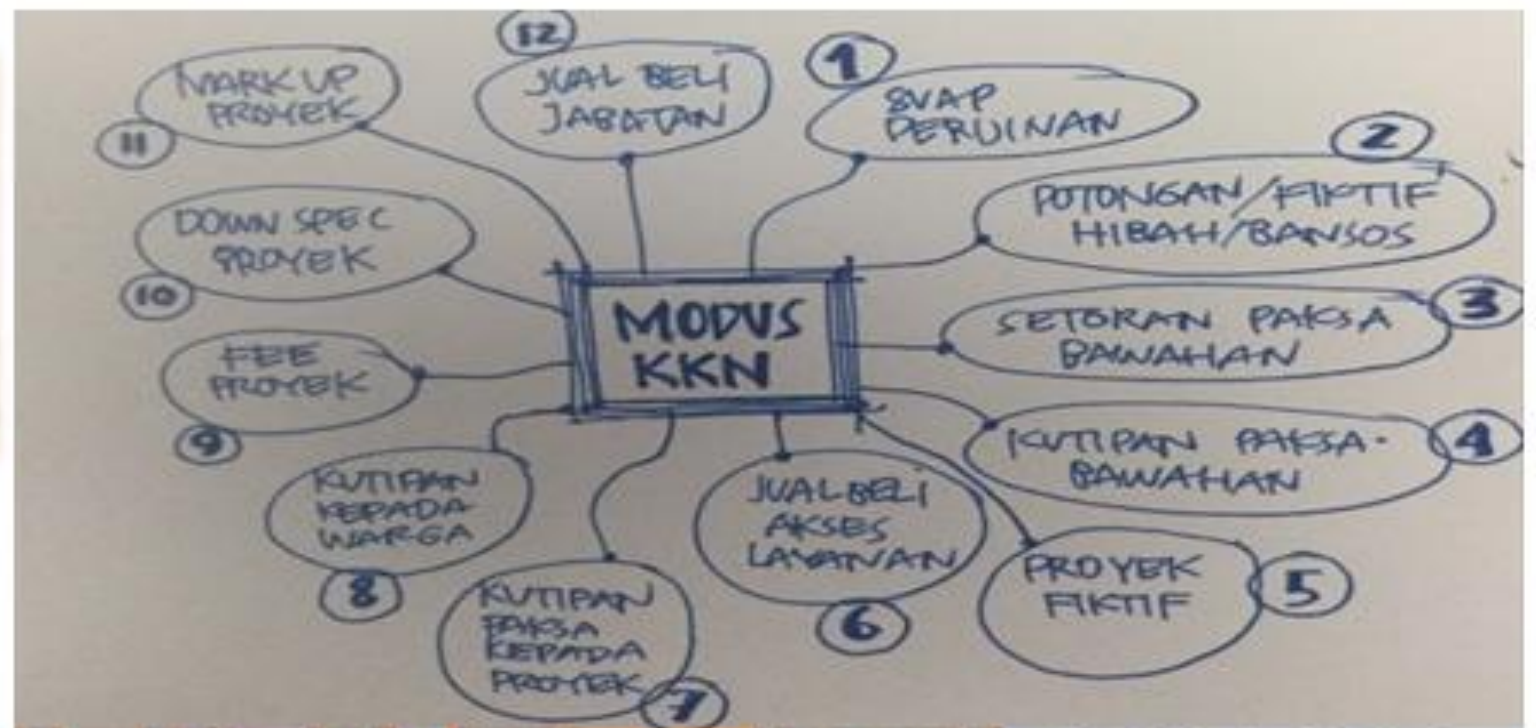 MODUS
KKN
1
SUAP
PERIJINAN
2
POTONGAN/FIKTIF
HIBAH/BANSOS
3
SETORAN PAKSA
BAWAHAN
4
KUTIPAN PAKSA
BAWAHAN
5
PROYEK
FIKTIF
6
JUAL BELI
AKSES
LAYANAN
7
KUTIPAN
PAKSA
KEPADA
PROYEK
8
KUTIPAN
KEPADA
WARGA
9
FEE
PROYEK
10
DOWN SPEC
PROYEK
11
MARK UP
PROYEK
12
JUAL BELI
JABATAN